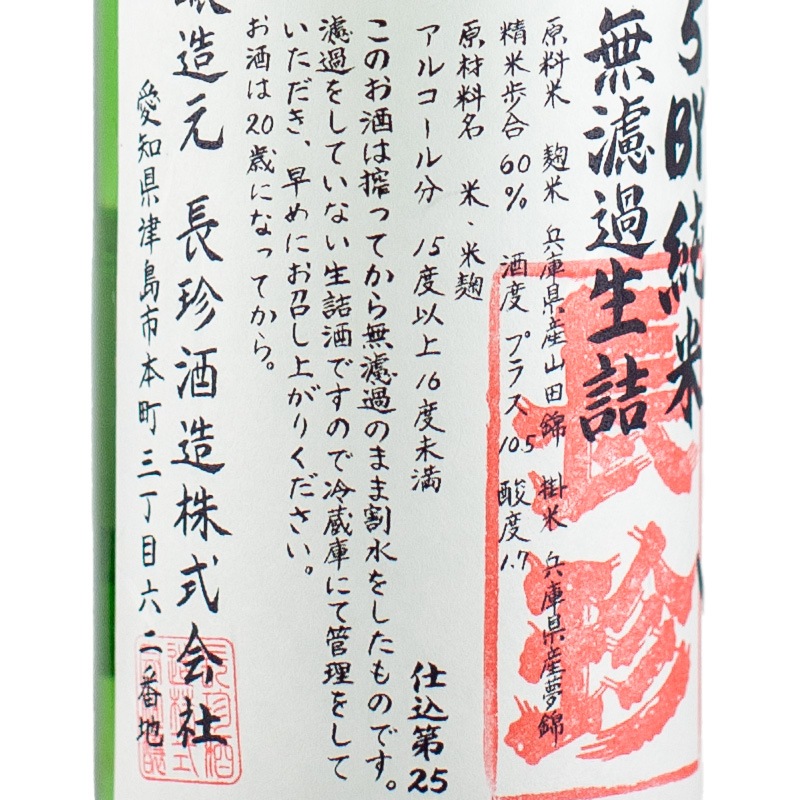 5BY純米
無濾過生詰
原料米 麹米 兵庫県産山田錦 掛米 兵庫県産夢錦
精米歩合 60% 酒度 プラス 10.5 酸度 1.7
原材料名 米・米麹
アルコール分 15度以上 16度未満 仕込第25
このお酒は搾ってから無濾過のまま割水をしたものです。
濾過をしていない生詰酒ですので冷蔵庫にて管理をして
いただき、早めにお召し上がりください。
お酒は20歳になってから。
醸造元 長珍酒造株式会社
愛知県津島市本町三丁目六二番地
長珍